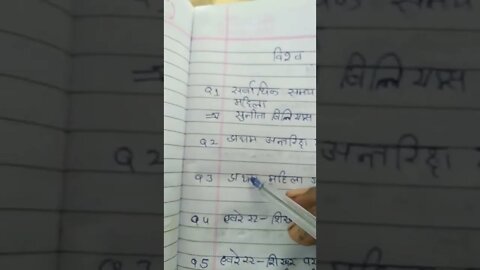 विश्व
Q1 सर्वाधिक समय
महिला
⇒ सुनीता विलियम्स
Q2 प्रथम अन्तरिक्ष
Q3 प्रथम महिला
Q4 एवरेस्ट-शिख
Q5 एवरेस्ट-शिखर पर